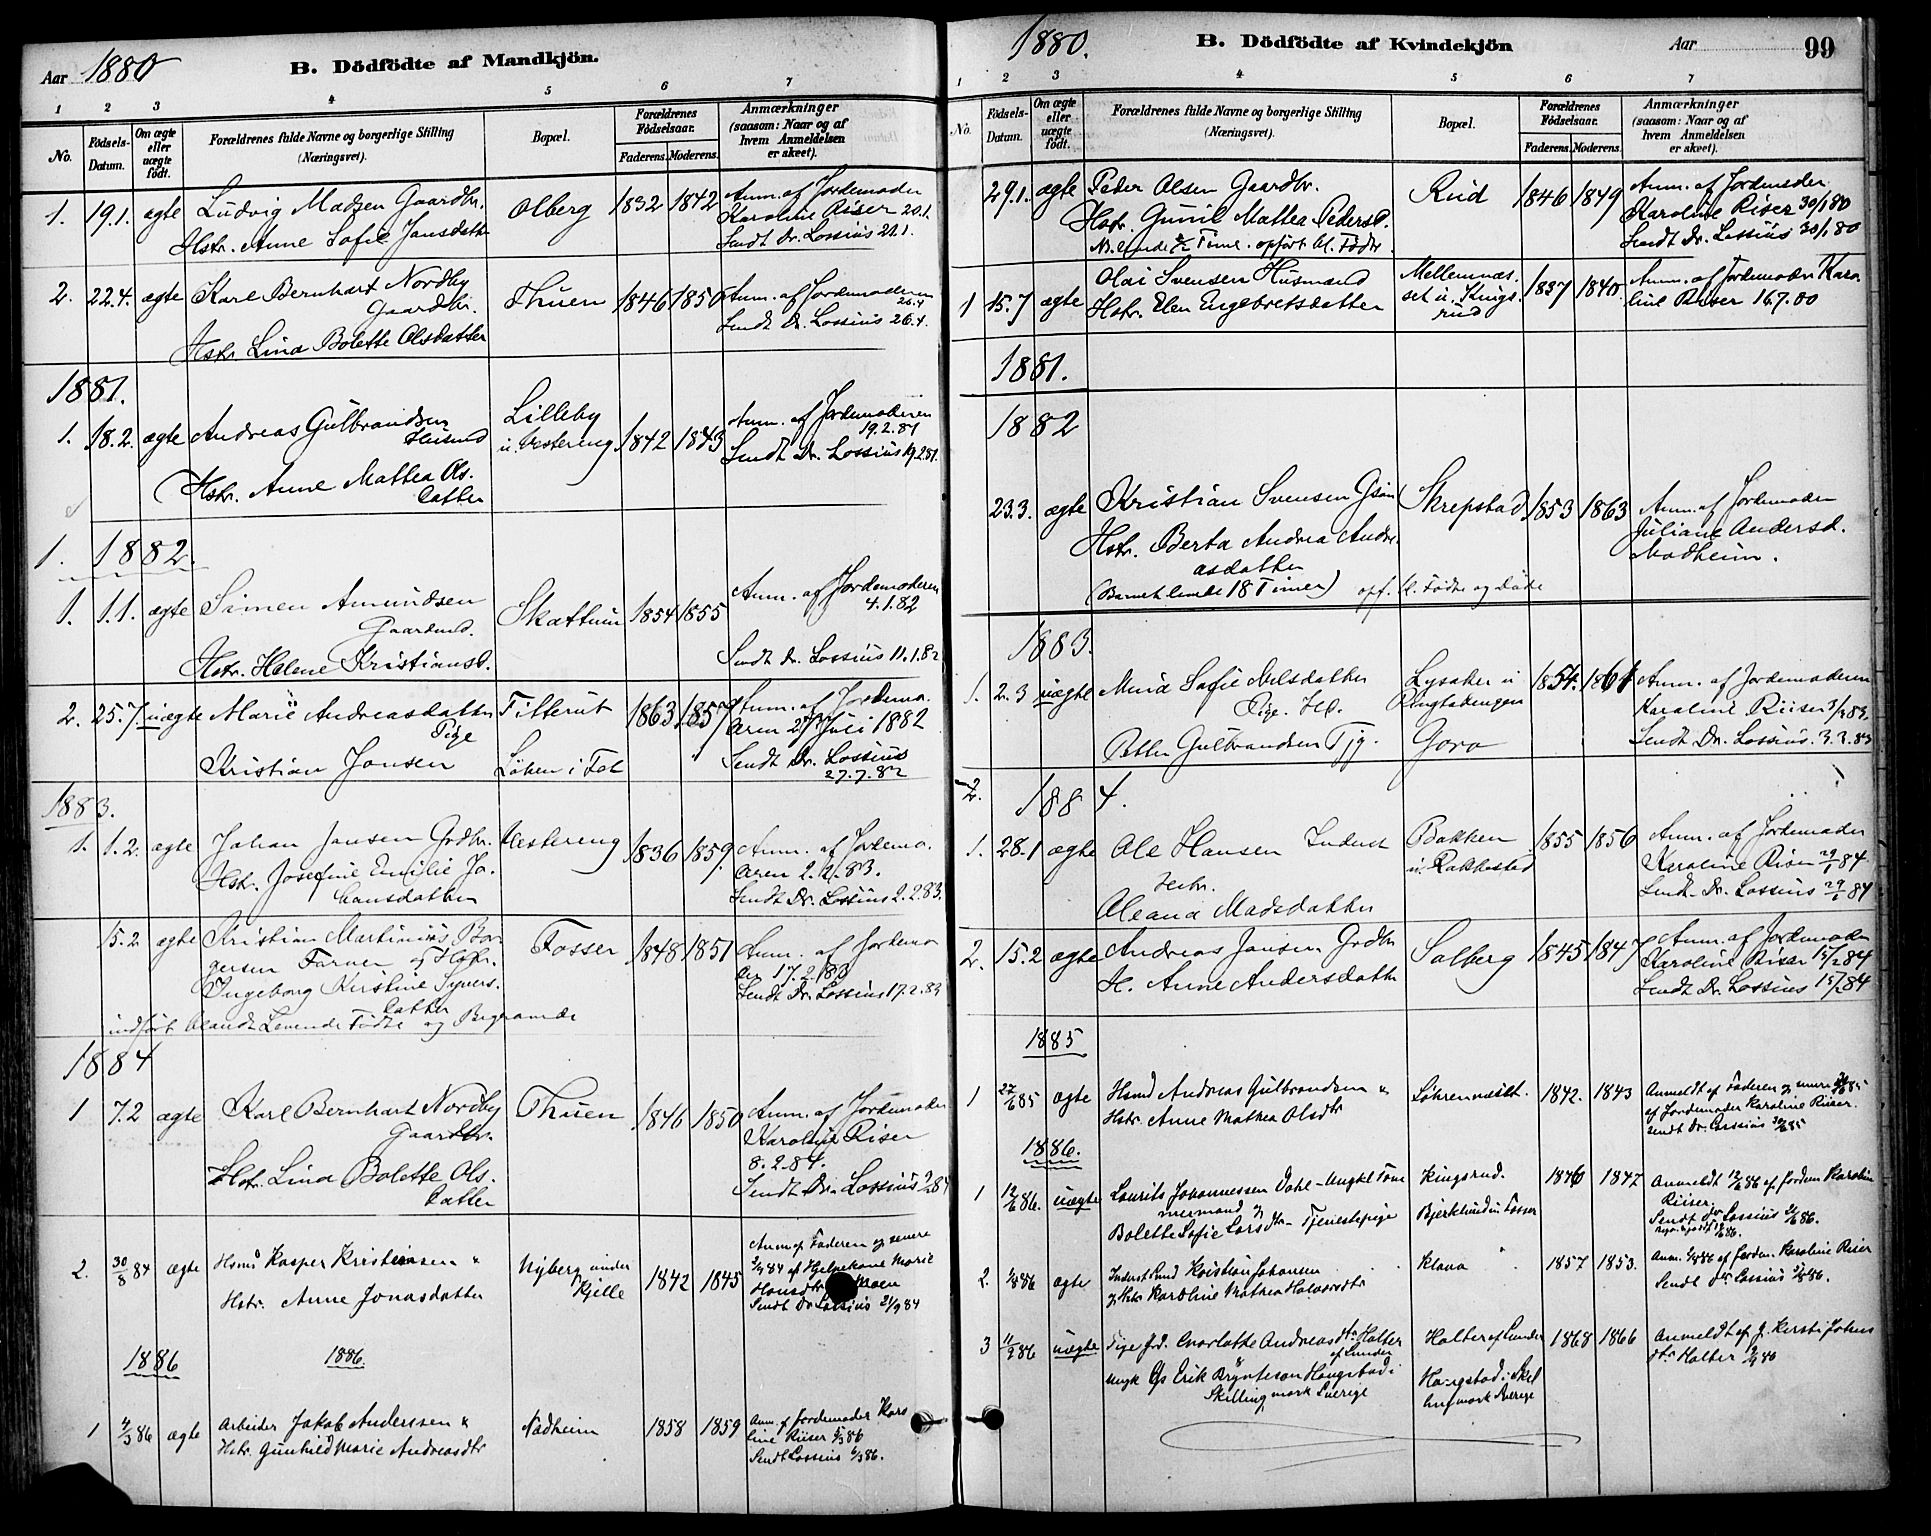 Aar 1880
B. Dödfödte af Mandkjön.
1 2 3 4 5 6 7
No.
Födsels-Datum.
Om ægte eller uægte födt.
Forældrenes fulde Navne og borgerlige Stilling (Næringsvei).
Bopæl.
Forældrenes Födselsaar.
Faderens. Moderens.
Anmærkninger (saasom: Naar og af hvem Anmeldelsen er skeet).
1. 19.1. ægte Ludvig Madsen Gaardbr. Olberg 1832 1842 Anm. af Jordemoder
Hstr. Anne Sofie Jansdatter Karoline Riser 20.1.
Sendt Dr. Lossius 21.1.
2. 22.4. ægte Karl Bernhart Nordby Thuen 1846 1850 Anm. af Jordemoderen
Gaardbr. 26.4
Hstr Lina Bolette Olsdatter Sendt Dr. Lossius 26.4.
1881.
1. 18.2. ægte Andreas Gulbrandsen Lilleby 1842 1843 Anm. af Jordemoderen
Husmd u. Vestereng 19.2.81
Hstr. Anne Mathea Ols- Sendt Dr. Lossius 19.2.81.
datter
1. 1882.
1. 1.1. ægte Simen Amundsen Skattum 1854 1855 Anm. af Jordemoderen
Gaardmd. 4.1.82
Hstr. Helene Kristiansd. Sendt Dr. Lossius 11.1.82
2. 25.7 uægte Marie Andreasdatter Titterut 1863 1857 Anm. af Jordemo-
Pige deren 27 Juli 1882
Kristian Jansen Löken i Fet Sendt Dr. Lossius
27.7.82
1883.
1. 1.2. ægte Johan Jansen Grdbr. Vestereng 1836 1859. Anm. af Jordemo-
Hstr. Josefine Emilie Jo- deren 2.2.83.
hansdatter Sendt Dr. Lossius 2.2.83.
15.2 ægte Kristian Martinius Bor- Fosser 1848 1851 Anm. af Jordemo
gersen Farver og Hstr. der 17.2.83
Ingeborg Kirstine Syvers- Sendt Dr. Lossius 17.2.83
datter
indført blandt Levende Födte og Begravede
1884
1 7.2 ægte Karl Bernhart Nordby Thuen 1846 1850 Anm. af Jordemoder
Gaardbr. Karoline Riser
8.2.84.
Hstr. Lina Bolette Ols- Sendt Dr. Lossius
datter
2. 30/8 84 ægte Hsmd Kasper Kristiansen " Nyberg under 1842 1845 Anm af Faderen og senere
Hstr. Anne Jonasdatter Kjille af Hjelpekone Marie
Hansdtr Moen
Sendt Dr Lossius 2/9 84
1886 1886.
1 4/3 86 ægte Arbeider Jakob Anderssen " Nadheim 1858 1859 Anm. af Jordemoder Karo
Hstr. Gunhild Marie Andreasdtr line Riiser 5/3 86
Sendt Lossius 6/3 86.
1880.
B. Dödfödte af Kvindekjön
Aar
99
1 2 3 4 5 6 7
No.
Födsels-Datum.
Om ægte eller uægte födt.
Forældrenes fulde Navne og borgerlige Stilling (Næringsvei).
Bopæl.
Forældrenes Födselsaar.
Faderens. Moderens.
Anmærkninger (saasom: Naar og af hvem Anmeldelsen er skeet).
29.1. ægte Peder Olsen Gaardbr. Rud 1846 1849 Anm. af Jordemoder
Hstr. Gunil Mathea Pedersd. Karoline Riser 30/1 80
NB. levede ½ Time. opført bl. Födte. Sendt Dr. Lossius 30/1 80
1 15.7 ægte Olai Svensen Husmand Mellemnæs- 1837 1840. Anm. af Jordemoder Karo-
Hstr. Elen Engebretsdatter set u. Kings- line Riser 16.7.80
rud
1881.
1882
23.3. ægte Kristian Svensen Skrepstad 1853 1863 Anm. af Jordemoder
Hstr. Berta Andrea Andre- Juliane Andersd.
asdatter Modheim.
(Barnet levede 18 Timer) opf. bl. Födte og Döde
1883.
1. 2.3 uægte Sofie Nilsdatter Lysaker u 1854. 1861 Anm. af Jordemoderen
Pige. Karoline Riiser 3/3 83.
Petter Gulbrandsen Tjg. Goro Sendt Dr. Lossius. 3.3.83
2. 1884.
1. 28.1 ægte Ole Hansen Inderst Bakken 1855 1856 Anm. af Jordemoder
Hstr. u. Rakkestad Karoline Riser 29/1 84
Oleana Madsdatter Sendt Dr. Lossius 29/1 84
2. 15.2 ægte Andreas Jansen Grdbr Solberg 1845 1847 Anm. af Jordemoder
H. Anne Andersdatter Karoline Riser 15/2 84
Sendt Dr. Lossius 15/2 84
1885
1 27/6 85 ægte Hsmd Andreas Gulbrandsen " 1842. 1843 Anmeldt af Faderen og senere
Hstr Anne Mathea Olsdtr af Jordemoder Karoline Riiser.
Sendt Dr. Lossius 30/6 85
1886.
1 12/6 86. uægte Laurits Johannessen Dahl - Ungkl Töm Kingsrud. 1846 1847 Anmeldt 12/6 86 af Jordem Karoline
mermand og Riiser.
Bolette Sofie Larsdtr - Tjenestepige Bjerkelund u Fosser Sendt Dr Lossius
2. ægte Inderst og Smd Kristian Johansen Klava 1857 1853. Anm. af Jordem. Karoline Riser
og Hstr Karoline Mathea Halvorsdtr Sendt Dr Lossius
3 uægte Pige Charlotte Andreasdtr Halter Halter af Sunder 1868 1866 Anmeldt af
Ungk Erik Bryntesen Haugstad i Haugstad i Skil dtr Halter
Skillingmark Sverige lingmark Sverige